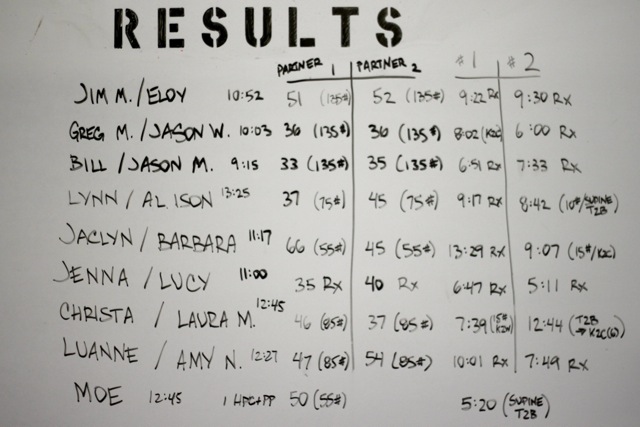 RESULTS
PARTNER 1 PARTNER 2 #1 #2
JIM M./ELOY 10:52 51 (135#) 52 (135#) 9:22 Rx 9:30 Rx
GREG M./JASON W. 10:03 36 (135#) 36 (135#) 8:02 (K2C) 6:00 Rx
BILL/JASON M. 9:15 33 (135#) 35 (135#) 6:51 Rx 7:33 Rx
LYNN/ALISON 13:25 37 (75#) 45 (75#) 9:17 Rx 8:42 (10#/SUPINE T2B)
JACLYN/BARBARA 11:17 66 (55#) 45 (55#) 13:29 Rx 9:07 (15#/K2C)
JENNA/LUCY 11:00 35 Rx 40 Rx 6:47 Rx 5:11 Rx
CHRISTA/LAURA M. 12:45 46 (85#) 37 (85#) 7:39 (15# 12:44 (T2B → K2C(6))
LUANNE/AMY N. 12:27 47 (85#) 54 (85#) 10:01 Rx 7:49 Rx
MOE 12:45 1 HPC+PP 50 (55#) 5:20 (SUPINE T2B)